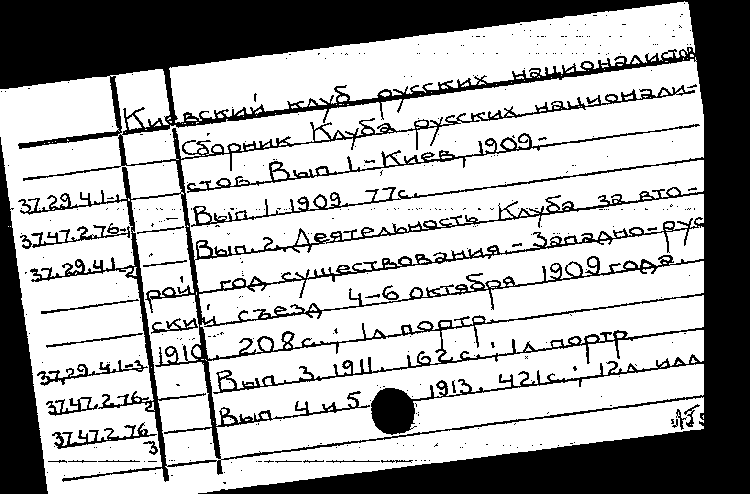 Киевский клуб русских националистов
Сборник Клуба русских национали-
стов. Вып. 1.- Киев, 1909.-
37.29.4.1=1 Вып. 1. 1909. 77с.
37.47.2.76=1 Вып. 2. Деятельность Клуба за вто-
37.29.4.1=2 рой год существования. - Западно-рус
ский съезд 4-6 октября 1909 года.
1910. 208 с.; 1л портр.
37.29.4.1=3 Вып. 3. 1911. 162 с.; 1л портр.
37.47.2.76=2 Вып. 4 и 5. 1913. 421с.; 12л. илл
37.47.2.76
3